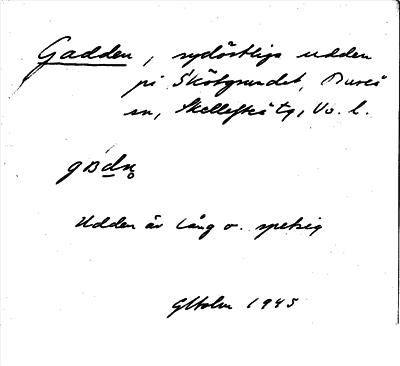 Gadden, sydöstliga udden
på Skötgrundet, Bureå
sn, Skellefteå tg, Vb. l.
Udden är lång o. spetsig
GHolm 1945